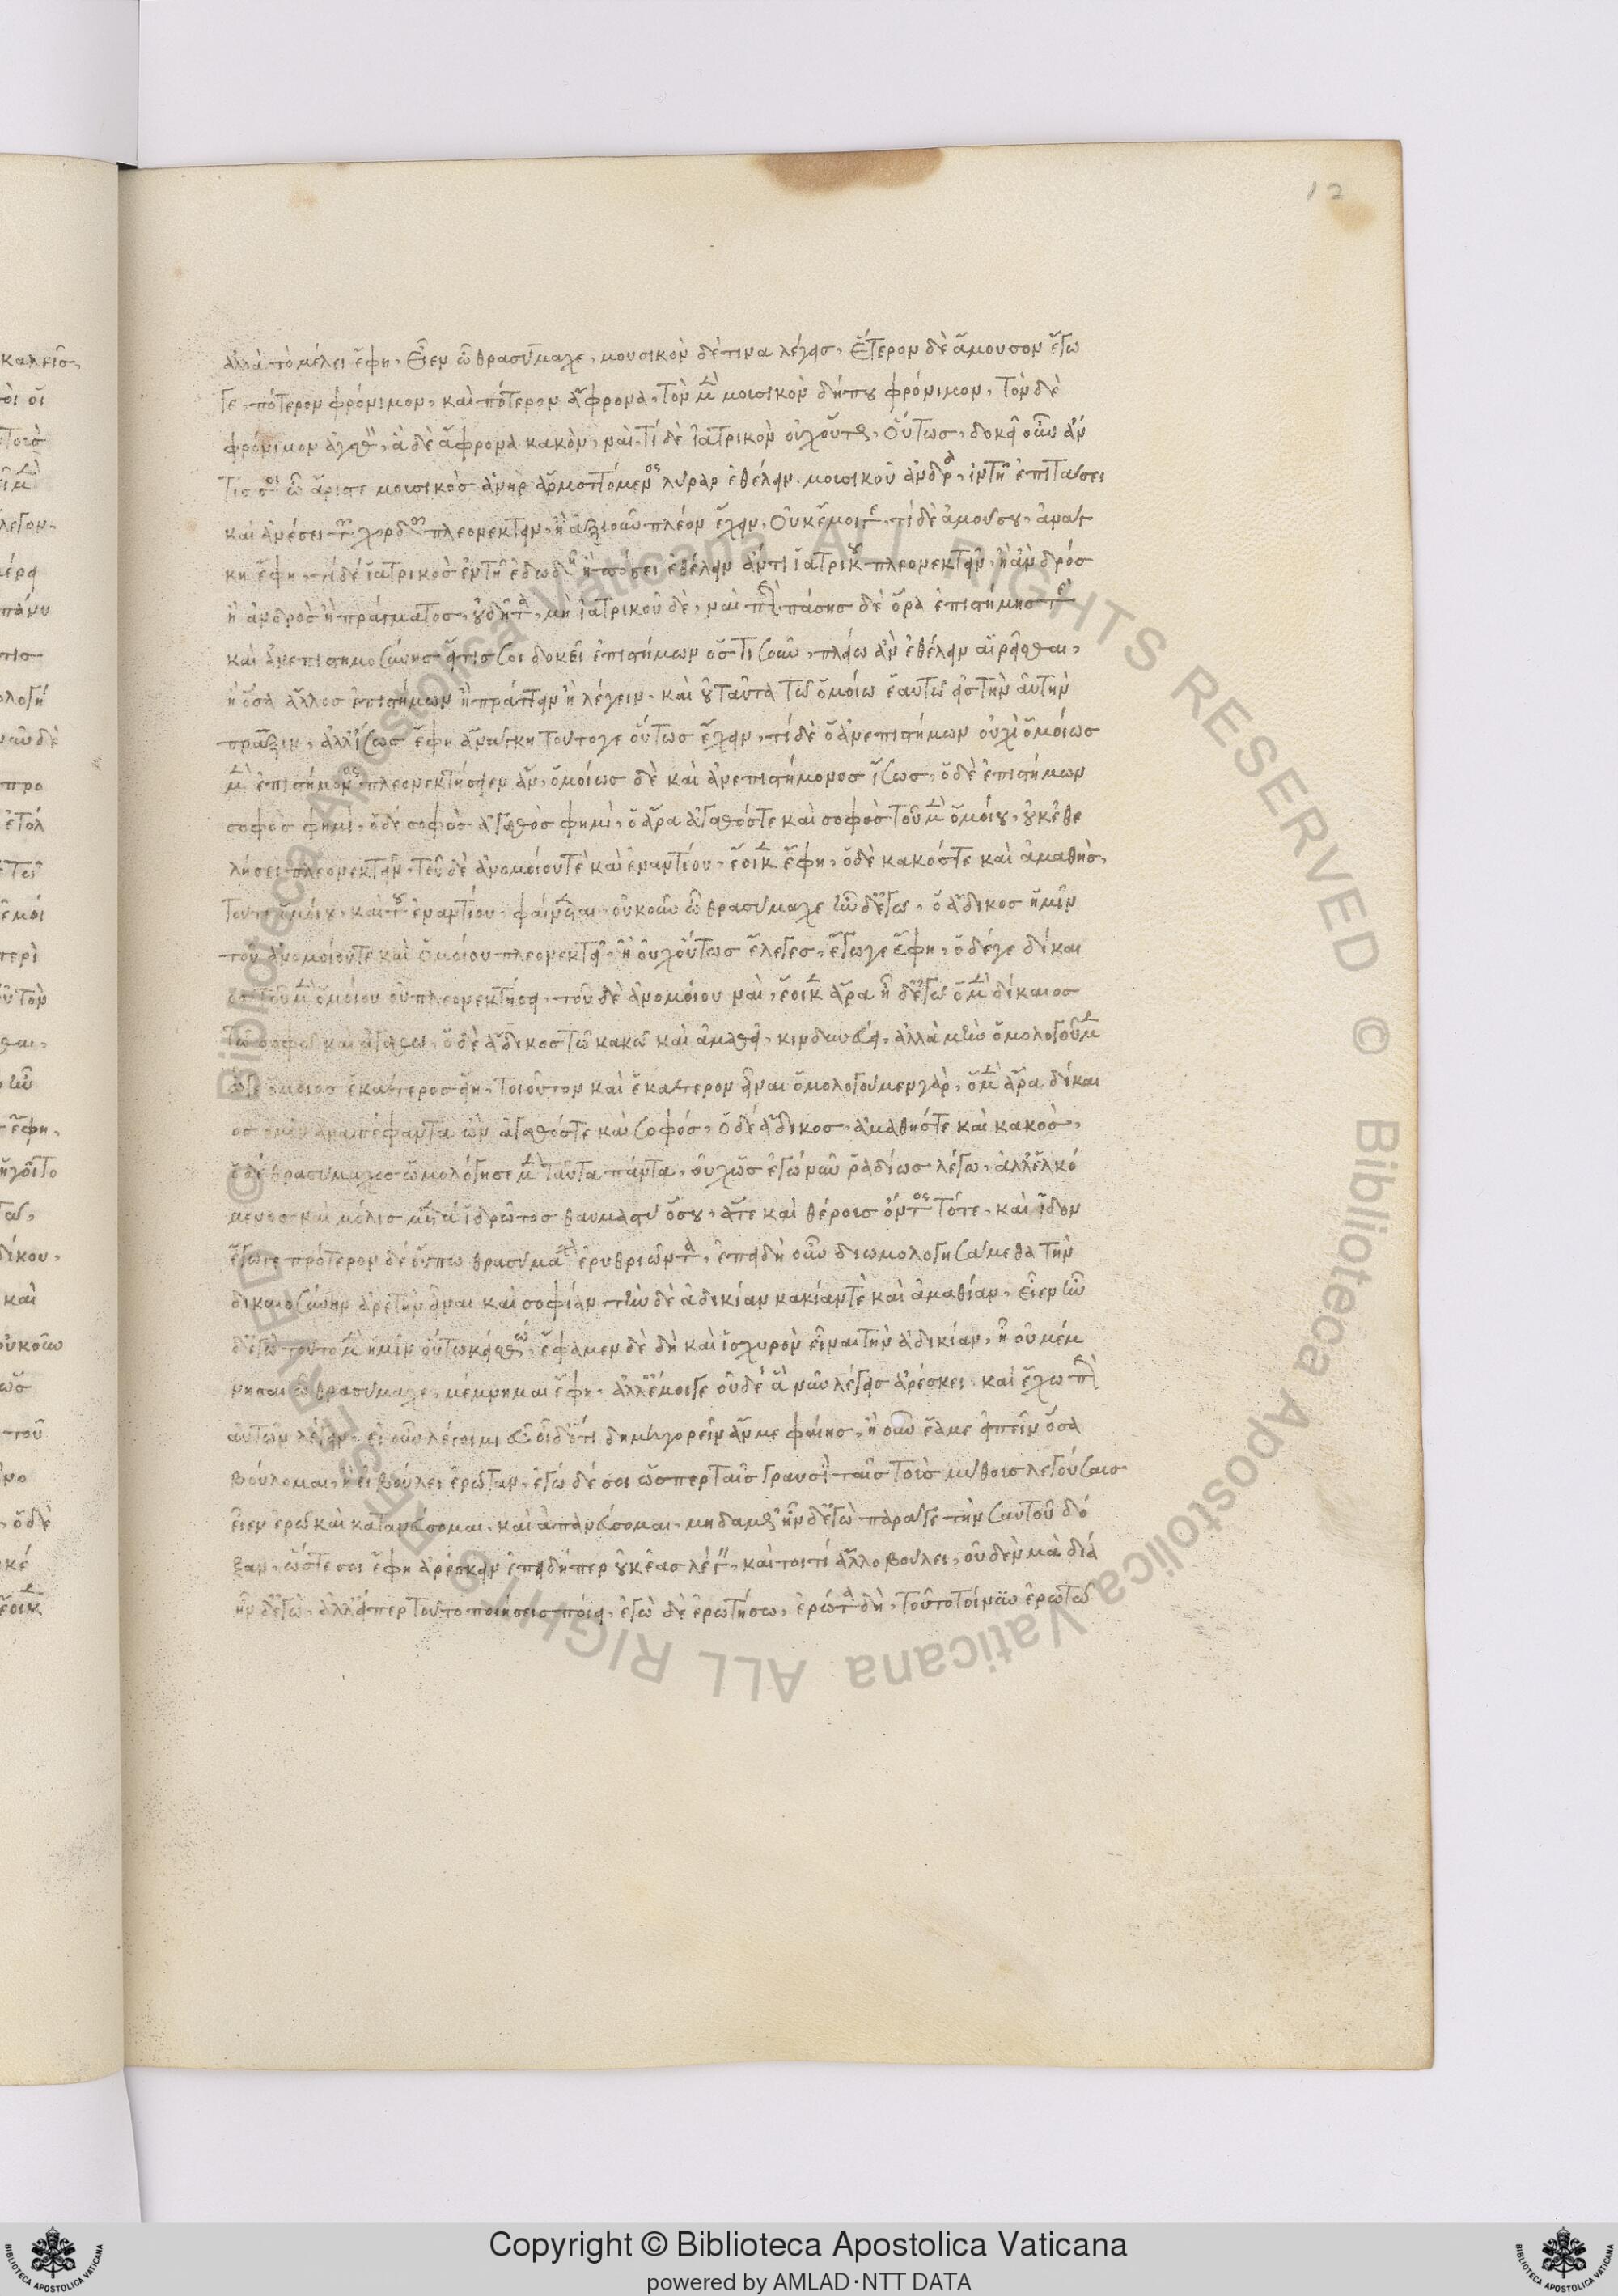 12
ἀλλὰ τὸ μέλει ἔφη. Εἶεν ὦ θρασύμαχε, μουσικὸν δὲ τινα λέγεισ, ἕτερον δὲ ἄμουσον ἔγω
γε. πότερον φρόνιμον, καὶ πότερον ἄφρονα, τὸν μὲν μουσικὸν δήπου φρόνιμον, τὸν δὲ
φρόνιμον ἀγαθὸν, ἃ δὲ ἄφρονα κακὸν, ναὶ. τί δὲ ἰατρικὸν οὐχ οὕτως, οὕτωσ. δοκεῖ οὖν ἄν
τίσ σοι ὦ ἄριστε μουσικὸσ ἀνὴρ ἁρμοττόμενος λύραν ἐθέλειν μουσικοῦ ἀνδρὸς, ἐν τῇ ἐπιτάσει
καὶ ἀνέσει τῶν χορδῶν πλεονεκτεῖν, ἢ ἀξιοῦν πλέον ἔχειν. Οὐκ ἔμοιγε, τί δὲ ἀμούσου, ἀνάγ
κη ἔφη, τί δέ ἰατρικὸσ ἐν τῇ ἐδωδῇ ἢ πόσει ἐθέλειν ἄν τι ἰατρικοῦ πλεονεκτεῖν, ἢ ἀνδρόσ
ἢ ἀνδρὸσ ἢ πράγματοσ, οὐ δῆτα, μὴ ἰατρικοῦ δὲ, ναὶ περὶ πάσησ δὲ ὅρα ἐπιστήμησ τε
καὶ ἀνεπιστημοσύνησ εἴ τισ σοι δοκεῖ ἐπιστήμων ὁστισοῦν, πλείω ἂν ἐθέλειν αἱρεῖσθαι,
ἢ ὅσα ἄλλοσ ἐπιστήμων ἢ πράττειν ἢ λέγειν, καὶ οὐ ταὐτὰ τῷ ὁμοίω ἑαυτῷ εἰσ τὴν αὐτὴν
πρᾶξιν, ἀλλ' ἴσωσ ἔφη ἀνάγκη τοῦτό γε οὕτωσ ἔχειν, τί δὲ ὁ ἀνεπιστήμων οὐχὶ ὁμοίωσ
μὲν ἐπιστήμονος πλεονεκτήσειεν ἄν, ὁμοίωσ δὲ καὶ ἀνεπιστήμονοσ ἴσωσ, ὁ δὲ ἐπιστήμων
σοφὸσ φημὶ, ὁ δέ σοφὸσ ἀγαθὸσ φημὶ, ὁ ἄρα ἀγαθόστε καὶ σοφὸσ τοῦ μὲν ὁμοίου, οὐκ ἐθε
λήσει πλεονεκτεῖν, τοῦ δὲ ἀνομοίου τὲ καὶ ἐναντίου, ἔοικεν ἔφη, ὁ δὲ κακόστε καὶ ἀμαθὴσ,
τοῦτε ὁμοίου, καὶ τοῦ ἐναντίου, φαίνεται, οὐκοῦν ὦ θρασύμαχε ἦν δ' ἐγω, ὁ ἄδικοσ ἡμῖν
τοῦ ἀνομοίου τε καὶ ὁμοίου πλεονεκτεῖ, ἢ οὐχ οὕτωσ ἔλεγεσ, ἔγωγε ἔφη, ὁ δέγε δίκαι
οσ τοῦ μὲν ὁμοίου οὐ πλεονεκτήσει, τοῦ δὲ ἀνομοίου ναὶ, ἔοικεν ἄρα ἦν δ' ἐγώ ὁ μὲν δίκαιοσ
τῷ σοφῷ καὶ ἀγαθῷ, ὁ δὲ ἄδικοσ τῷ κακῷ καὶ ἀμαθεῖ, κινδυνεύει, ἀλλὰ μὴν ὁμολογοῦμεν
ᾧτε ὅμοιοσ ἑκάτεροσ εἴη, τοιοῦτον καὶ ἑκάτερον εἶναι ὁμολογοῦμεν γὰρ, ὁ μὲν ἄρα δίκαι
οσ ἡμῖν ἀναπέφανται ὢν ἀγαθόστε καὶ σοφόσ, ὁ δέ ἄδικοσ, ἀμαθήστε καὶ κακοὸσ,
ὁ δὲ θρασύμαχοσ ὡμολόγησε μὲν ταῦτα πάντα, οὐχ ὡσ ἐγώ νῦν ῥαδίωσ λέγω, ἀλλ' ἑλκό
μενοσ καὶ μόλισ μετὰ ἱδρῶτοσ θαυμαστοῦ ὅσου, ἅτε καὶ θέρουσ ὄντος τότε, καὶ εἶδον
ἐγωγε πρότερον δέ οὔπω θρασύμαχον ἐρυθριῶντα, ἐπειδὴ οὖν διωμολογησάμεθα τὴν
δικαιοσύνην ἀρετὴν εἶναι καὶ σοφίαν τὴν δὲ ἀδικίαν κακίαν τὲ καὶ ἀμαθίαν, εἶεν ἦν
δ' ἐγὼ τοῦτο μὲν ἡμῖν οὕτω κείσθω, ἔφαμεν δὲ δὴ καὶ ἰσχυρὸν εἶναι τὴν ἀδικίαν, ἢ οὐ μέμ
νησαι ὦ θρασύμαχε, μέμνημαι ἔφη, ἀλλ' ἔμοιγε οὐδέ ἃ νῦν λέγεισ ἀρέσκει, καὶ ἔχω περὶ
αὐτῶν λέγειν, εἰ οὖν λέγοιμι εὖ οἶδ' ὅτι δημηγορεῖν ἄν με φαίησ, ἢ οὖν ἔα με εἰπεῖν ὅσα
βούλομαι, ἢ εἰ βούλει ἐρωτᾶν, ἐγώ δέ σοι ὥσπερ ταῖσ γραυσὶ ταῖσ τοὺσ μύθουσ λεγούσαισ
εἶεν ἐρῶ καὶ κατανεύσομαι, καὶ ἀπανεύσομαι, μηδαμῶς ἦν δ' ἐγὼ παράγε τὴν σαυτοῦ δό
ξαν, ὥστε σοι ἔφη ἀρέσκειν ἐπειδήπερ οὐκ ἐᾶσ λέγειν, καὶ τοι τί ἄλλο βούλει, οὐδὲν μὰ διά
ἦν δ' ἐγὼ, ἀλλ' εἴπερ τοῦτο ποιήσεισ ποίει, ἐγὼ δὲ ἐρωτήσω, ἐρώτα δὴ, τοῦτο τοίνυν ἐρωτῶ
Copyright © Biblioteca Apostolica Vaticana
powered by AMLAD·NTT DATA